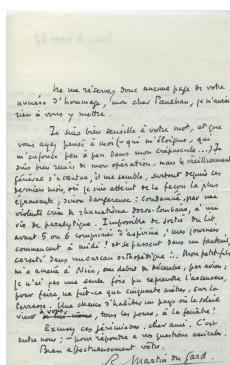 Ne me réservez donc aucune page de votre
numéro d'hommage, mon cher Paulhan, je n'aurai
rien à vous y mettre.
Je suis bien sensible à votre mot, et que
vous ayez pensé à moi (– qui m'éloigne, qui
m'enfonce peu à peu dans mon crépuscule...) Je
suis bien remis de mon opération, mais le vieillissement
général s'accentue, il me semble, surtout depuis ces
derniers mois, où je suis atteint de la façon la plus
éprouvante, sinon dangereuse : condamné, par une
violente crise de rhumatisme dorso-lombaire, à une
vie de paralytique. Impossible de sortir du lit
avant 5 ou 6 comprimés d'aspirine ; mes journées
commencent à midi ! et se passent dans un fauteuil,
corseté dans un carcan orthopédique !.. Mon petit-fils
m'a amené à Nice, au début de décembre, par avion ;
je n'ai pas une seule fois pu reprendre l'ascenseur,
pour faire, ne fût-ce que cinquante mètres, sur la
terrasse. Une chance d'habiter un pays où le soleil
vient à vous, tous les jours, à la fenêtre !
Excusez ces jérémiades, cher ami. C'est
entre nous ; – pour répondre à vos questions amicales.
Bien affectueusement vôtre
R. Martin du Gard.